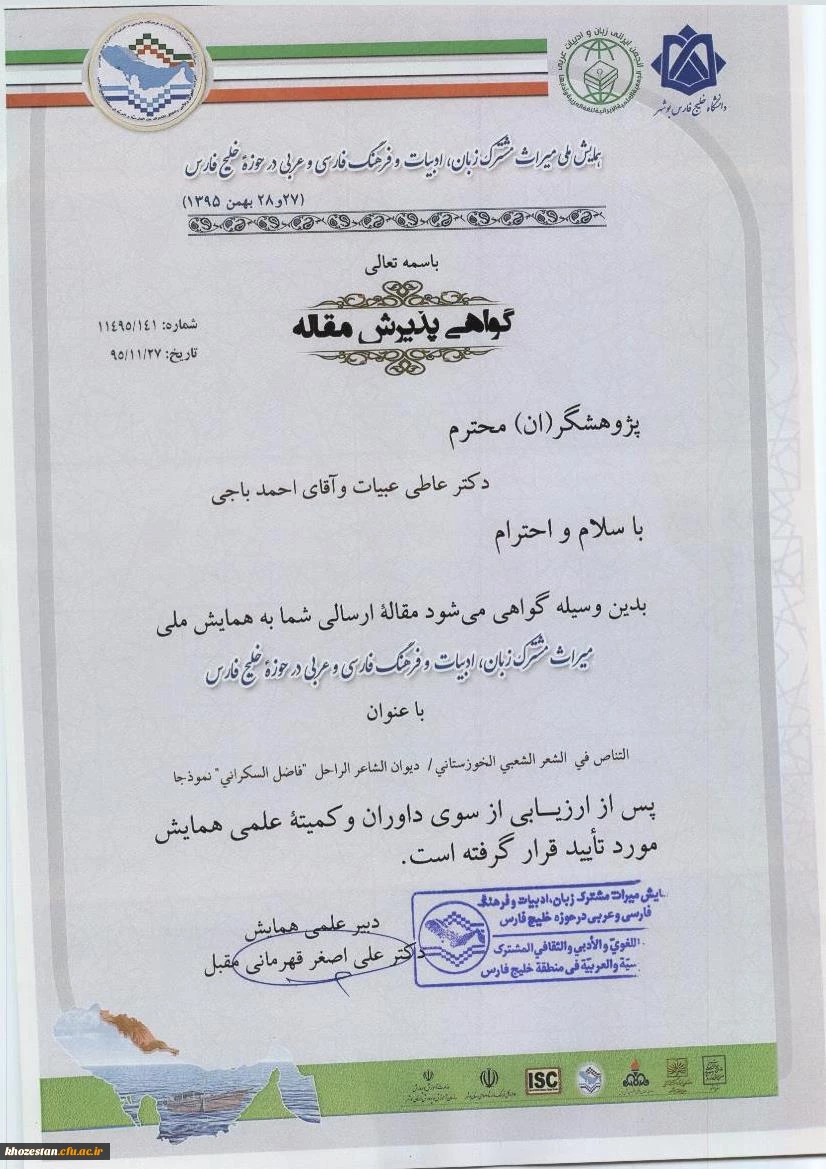 انجمن ایرانی زبان و ادبیات عربی
دانشگاه خلیج فارس بوشهر
همایش ملی میراث مشترک زبان، ادبیات و فرهنگ فارسی و عربی در حوزهٔ خلیج فارس
(۲۷و۲۸ بهمن ۱۳۹۵)
باسمه تعالی
گواهی پذیرش مقاله
شماره: ۱۱٤۹٥/۱٤۱
تاریخ: ۹٥/۱۱/۲۷
پژوهشگر(ان) محترم
دکتر عاطی عبیات وآقای احمد باجی
با سلام و احترام
بدین وسیله گواهی می‌شود مقالهٔ ارسالی شما به همایش ملی
میراث مشترک زبان، ادبیات و فرهنگ فارسی و عربی در حوزهٔ خلیج فارس
با عنوان
التناص في الشعر الشعبي الخوزستاني/ ديوان الشاعر الراحل "فاضل السكراني" نموذجا
پس از ارزیــابی از سوی داوران وکمیتهٔ علمی همایش
مورد تأیید قرار گرفته است.
ایش میراث مشترک زبان، ادبیات و فرهنگ
فارسی و عربی در حوزه خلیج فارس
اللغويّ والأدبي والثقافي المشترك
سيّة والعربيّة في منطقة خليج فارس
دبیر علمی همایش
دکتر علی اصغر قهرمانی مقبل
ISC
khozestan.cfu.ac.ir